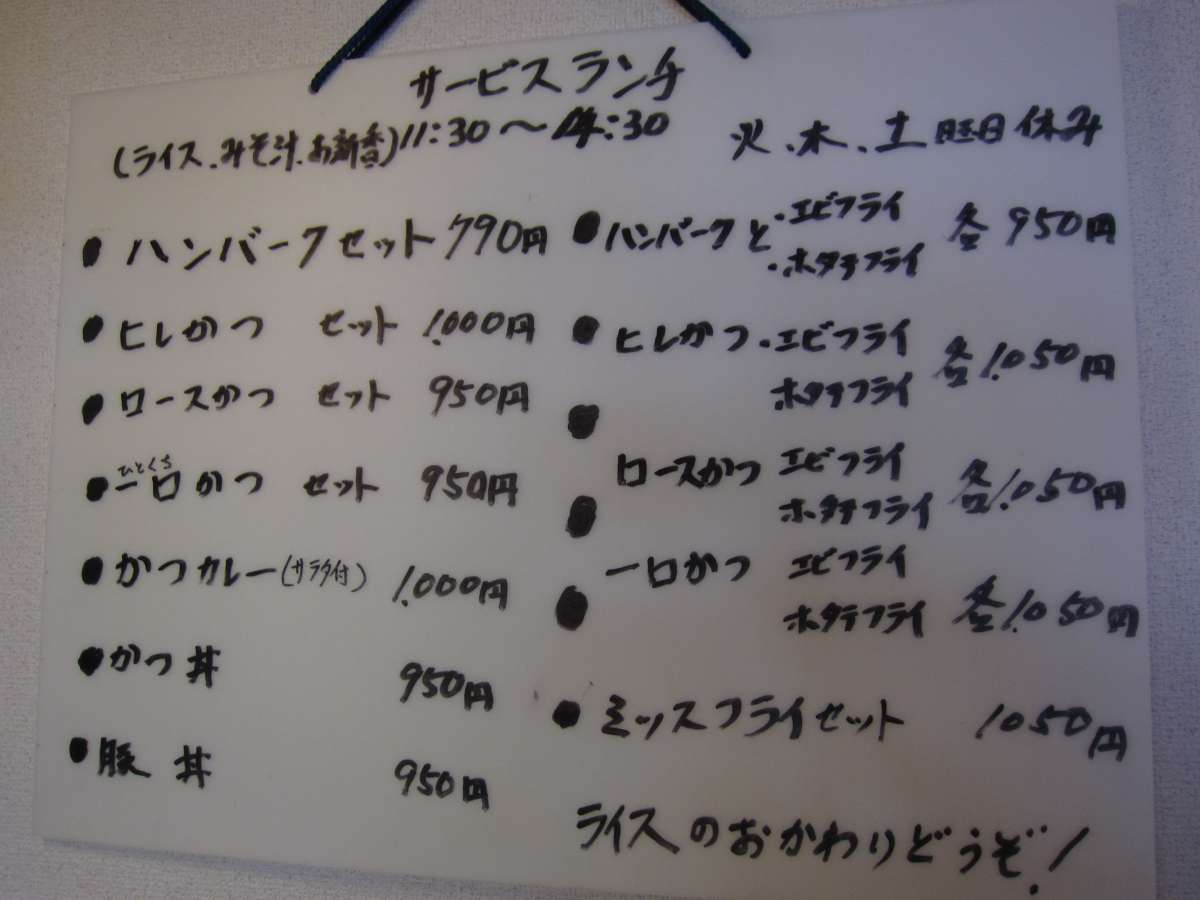 サービスランチ
(ライス、みそ汁、お新香)11:30〜14:30 火、木、土曜日休み
●ハンバーグセット 790円
●ヒレかつ セット 1.000円
●ロースかつ セット 950円
ひとくち
●一口かつ セット 950円
●かつカレー(サラダ付) 1.000円
●かつ丼 950円
●豚丼 950円
●ハンバーグと・エビフライ
・ホタテフライ 各950円
●ヒレかつ・エビフライ
ホタテフライ 各1.050円
●ロースかつ エビフライ
ホタテフライ 各1.050円
●一口かつ エビフライ
●ホタテフライ 各1.050円
●ミックスフライセット 1050円
ライスのおかわりどうぞ!